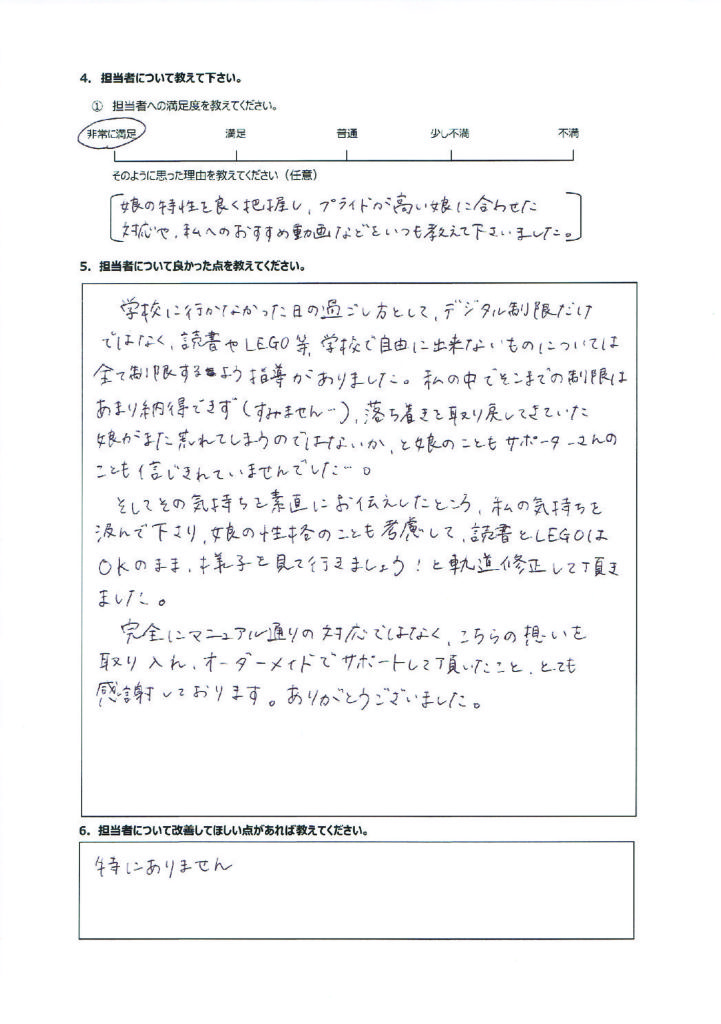 4. 担当者について教えて下さい。
① 担当者への満足度を教えてください。
非常に満足 満足 普通 少し不満 不満
そのように思った理由を教えてください（任意）
娘の特性を良く把握し、プライドが高い娘に合わせた
対応や、私へのおすすめ動画などをいつも教えて下さいました。
5. 担当者について良かった点を教えてください。
学校に行かなかった日の過ごし方として、デジタル制限だけ
ではなく、読書やLEGO等、学校で自由に出来ないものについては
全て制限するよう指導がありました。私の中でそこまでの制限は
あまり納得できず(すみません…)、落ち着きを取り戻してきていた
娘がまた荒れてしまうのではないか、と娘のこともサポーターさんの
ことも信じきれていませんでした…。
そしてその気持ちを素直にお伝えしたところ、私の気持ちを
汲んで下さり、娘の性格のことも考慮して、読書とLEGOは
OKのまま、様子を見て行きましょう！と軌道修正して頂き
ました。
完全にマニュアル通りの対応ではなく、こちらの想いを
取り入れ、オーダーメイドでサポートして頂いたこと、とても
感謝しております。ありがとうございました。
6. 担当者について改善してほしい点があれば教えてください。
特にありません